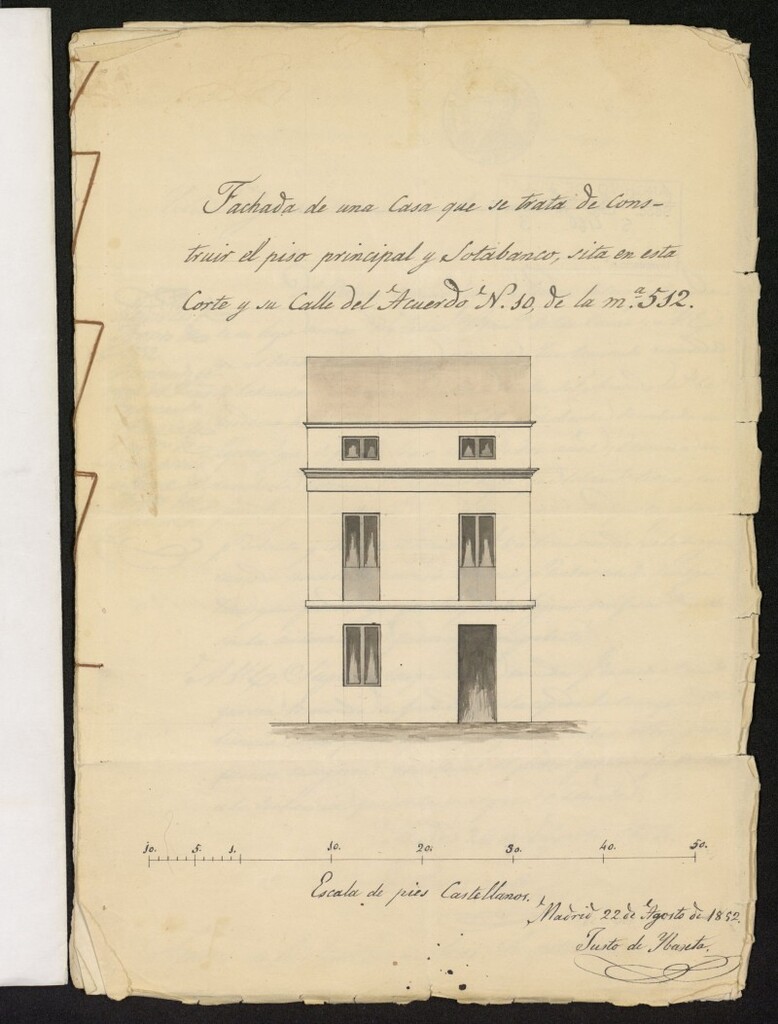 Fachada de una Casa que se trata de Cons-
truir el piso principal y Sotabanco, sita en esta
Corte y su Calle del Acuerdo N. 10, de la m.ª 512.
10. 5. 1. 10. 20. 30. 40. 50.
Escala de pies Castellanos.
Madrid 22 de Agosto de 1852.
Justo de Ybaseta.